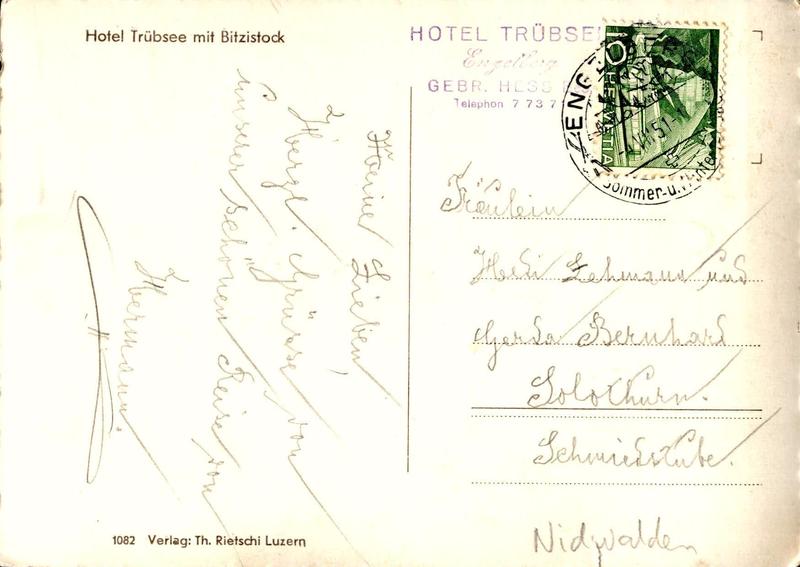 Hotel Trübsee mit Bitzistock
HOTEL TRÜBSEE
Engelberg
GEBR. HESS
Telephon 7 73 7
10
HELVETIA
ENGELBERG
Sommer-u.Winter
Meine Lieben,
Herzl. Grüsse von
unserer schönen Reise von
Hermann.
Fräulein
Hedi Lehmann und
Gerda Bernhard
Solothurn.
Schmiedstube.
Nidwalden
1082 Verlag: Th. Rietschi Luzern